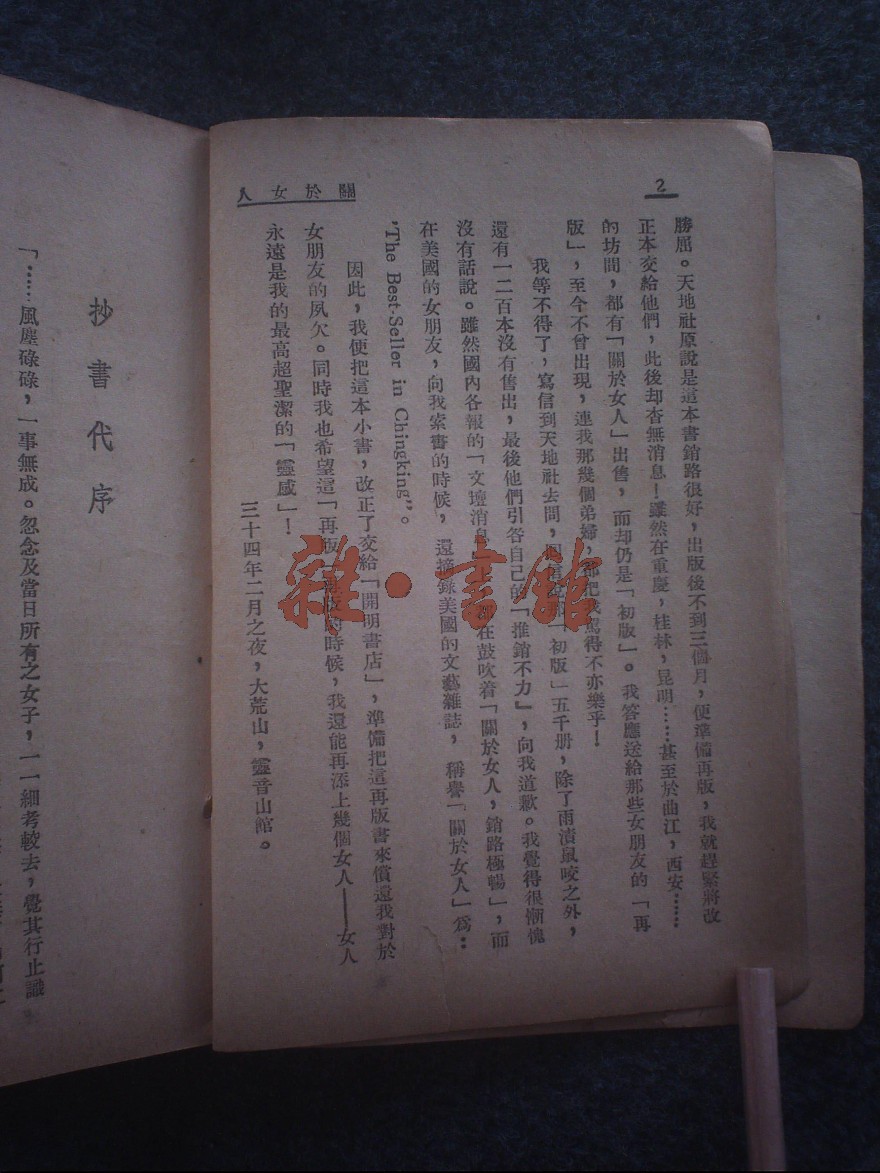 2
關於女人
勝屈。天地社原說是這本書銷路很好,出版後不到三個月,便準備再版,我就趕緊將改
正本交給他們,此後却杳無消息!雖然在重慶,桂林,昆明……甚至於曲江,西安……
的坊間,都有「關於女人」出售,而却仍是「初版」。我答應送給那些女朋友的「再
版」,至今不曾出現,連我那幾個弟婦,都把我罵得不亦樂乎!
我等不得了,寫信到天地社去問,「初版」五千册,除了雨漬鼠咬之外,
還有一二百本沒有售出,最後他們引咎自己的「推銷不力」,向我道歉。我覺得很慚愧
沒有話說。雖然國內各報的「文壇消息」,在鼓吹着「關於女人,銷路極暢」,而
在美國的女朋友,向我索書的時候,還摘錄美國的文藝雜誌,稱譽「關於女人」為:
"The Best-Seller in Chingking"。
因此,我便把這本小書,改正了交給「開明書店」,準備把這再版書來償還我對於
女朋友的夙欠。同時我也希望這「再版」的時候,我還能再添上幾個女人——女人
永遠是我的最高超聖潔的「靈感」!
三十四年二月之夜,大荒山,靈音山館。
抄書代序
「……風塵碌碌,一事無成。忽念及當日所有之女子,一一細考較去,覺其行止識
雜·書館